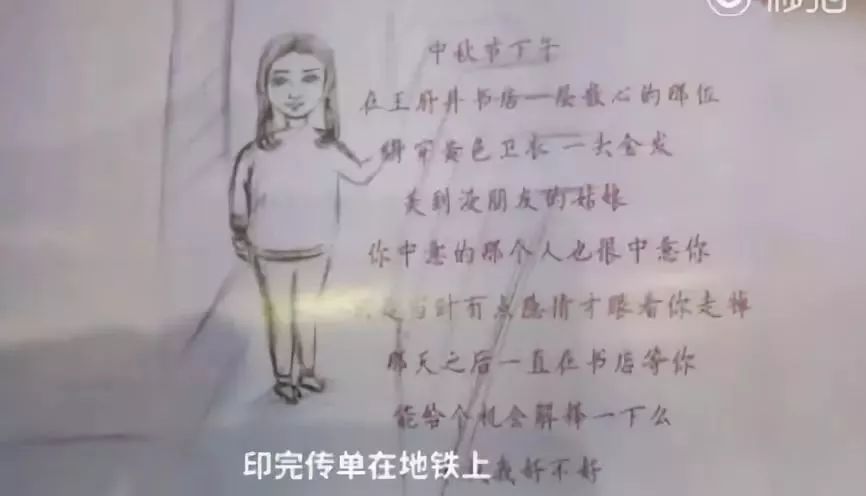 秒拍
中秋节下午
在王府井书店一层散心的那位
身穿黄色卫衣 一头金发
美到没朋友的姑娘
你中意的那个人也很中意你
当时有点隐情才眼看你走掉
那天之后一直在书店等你
能给个机会解释一下么
我好不好
印完传单在地铁上